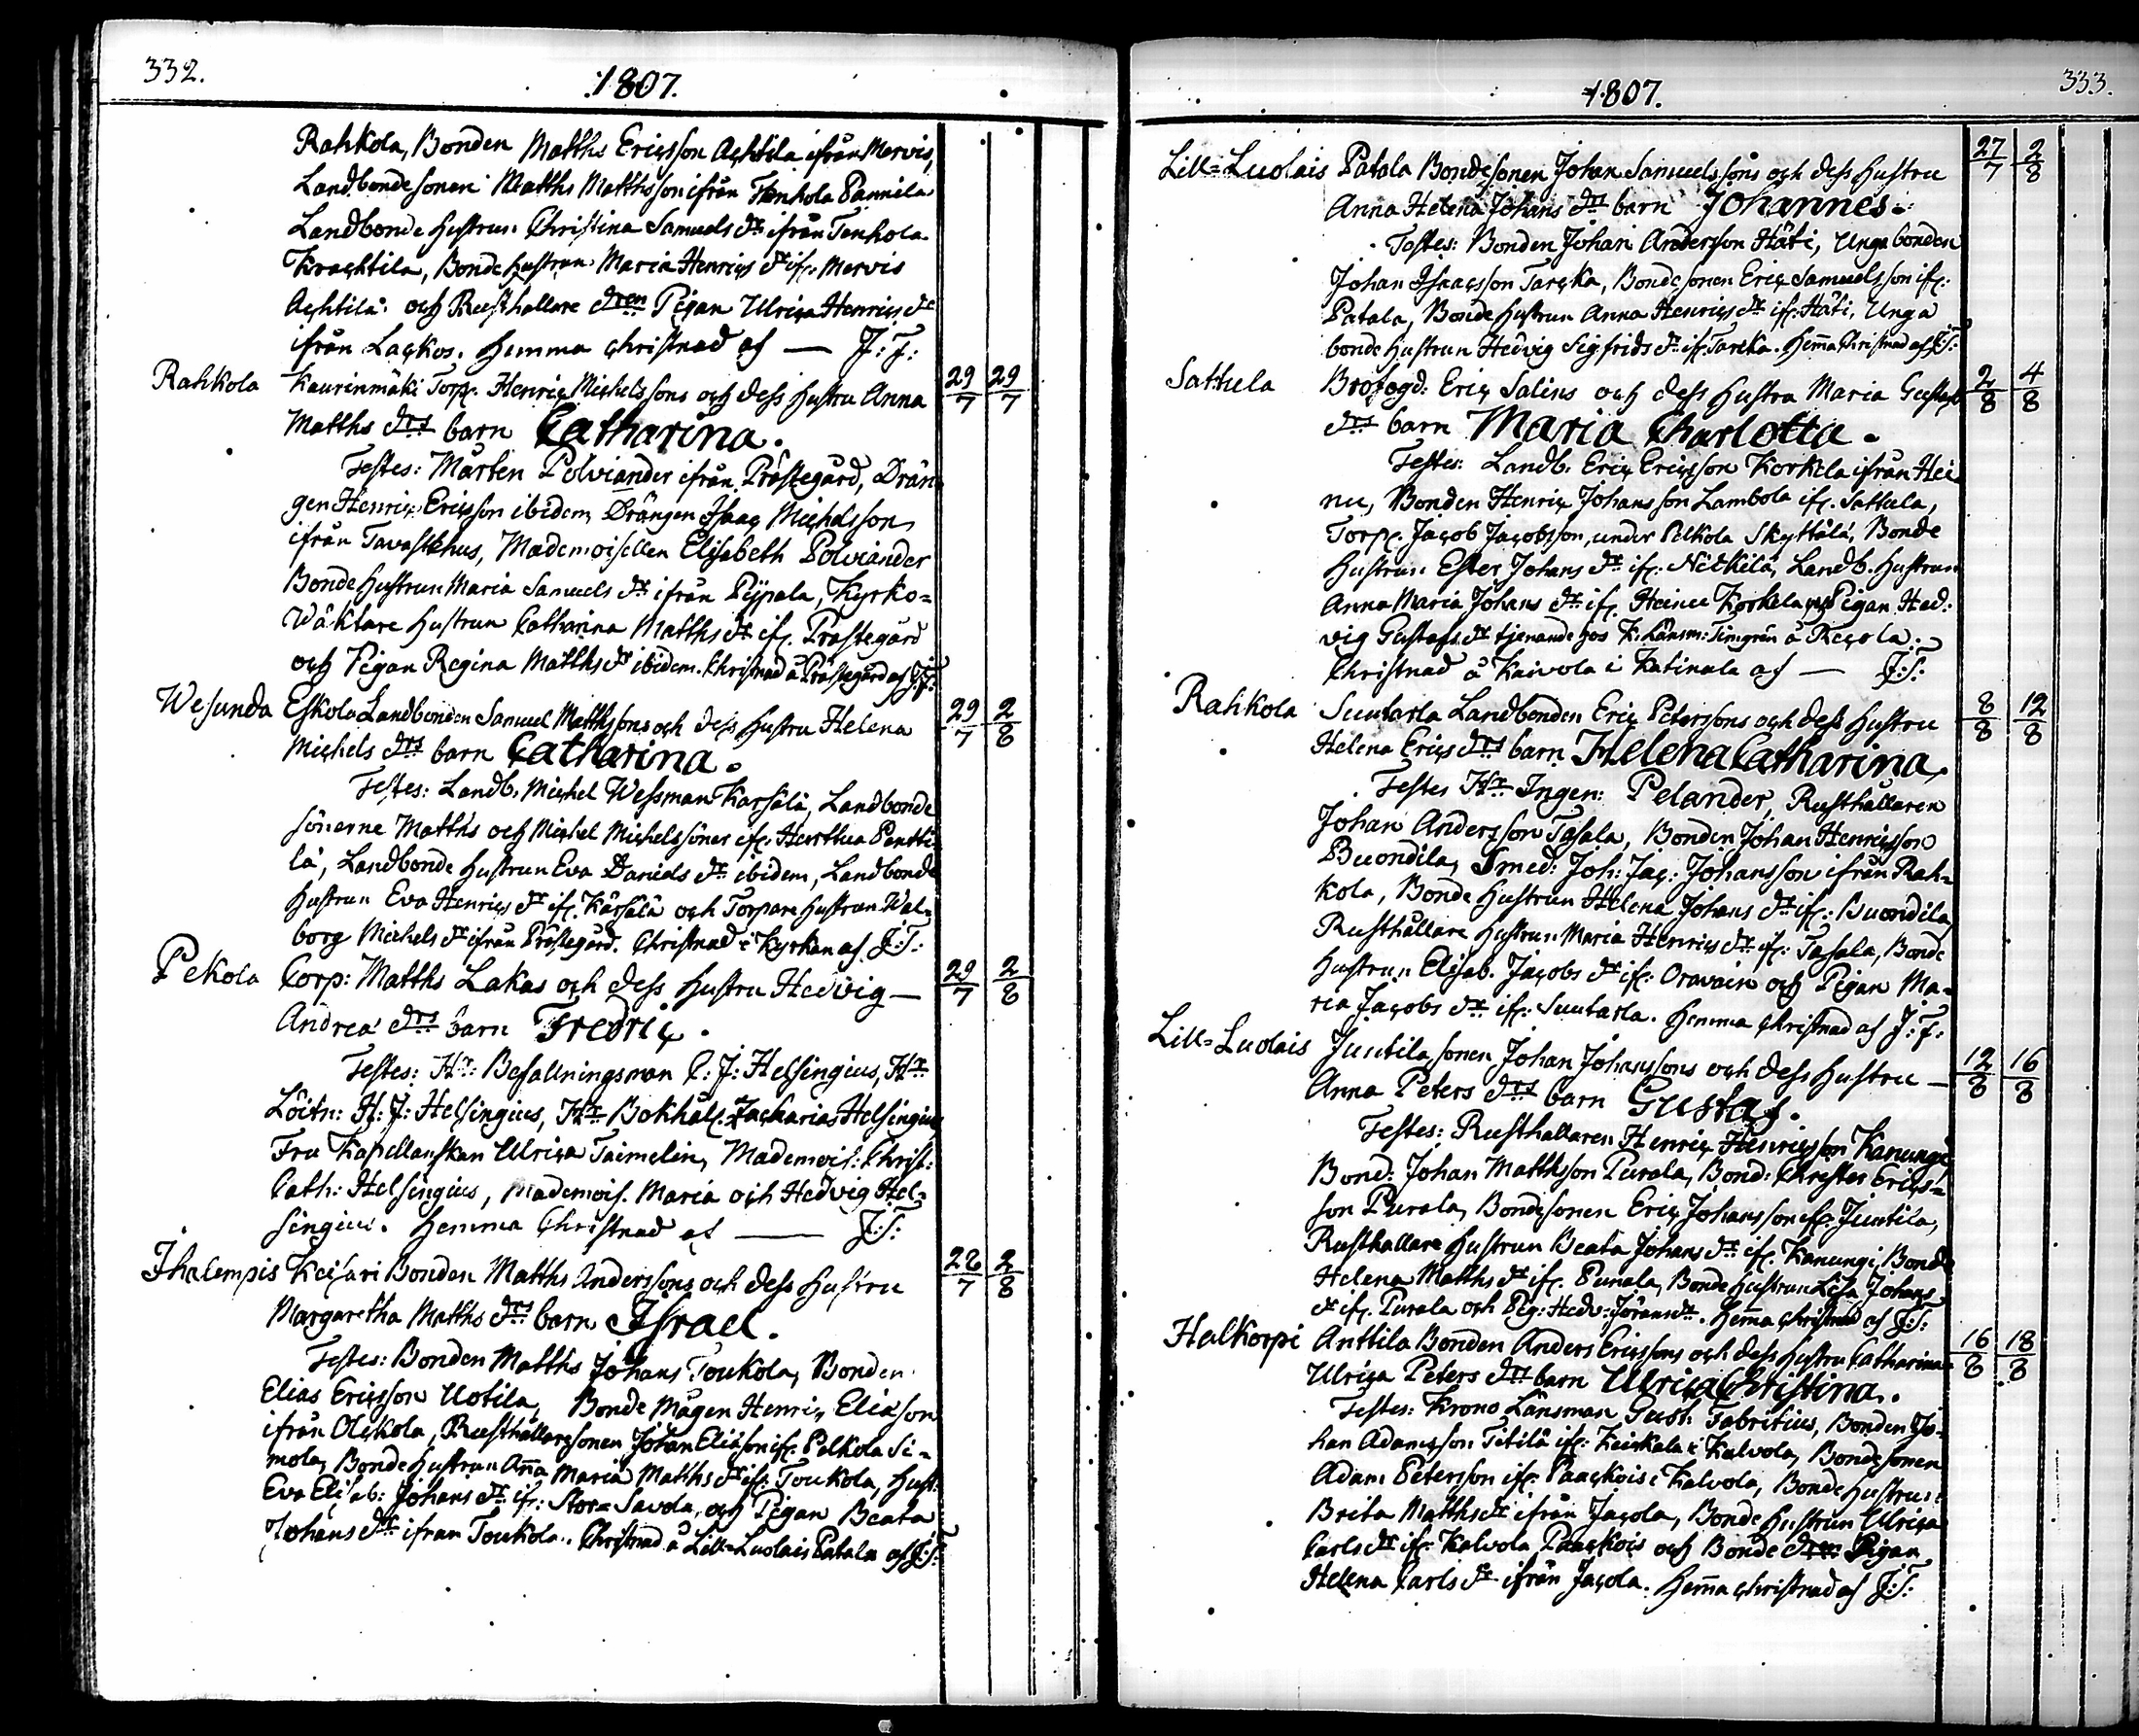 332.
1807.
Rahkola, Bonden Matths Ericsson Achtila ifrån Mervis,
Landbondesonen Matths Matthsson ifrån Tenhola Pannila
Landbonde hustrun Christina Samuels dr ifrån Tenhola
Krachtila, Bonde hustrun Maria Henrics dr ifr. Mervis
Achtila och Rusthållare dren Pigan Ulrica Henrics dr
ifrån Lackos. Hemma christnad af — J: T:
Rahkola Kaurinmäki Torp. Henric Michelssons och dess hustru Anna 29/7 29/7
Matths drs barn Catharina.
Testes: Mårten Polviander ifrån Prästegård, Drän
gen Henric Ericsson ibidem, Drängen Isaac Michelsson
ifrån Tavastehus, Mademoisellen Elisabeth Polviander
Bonde Hustrun Maria Samuels dr ifrån Pyppala, Kyrko=
Wäktare hustrun Catharina Matths dr ifr. Prästegård
och Pigan Regina Matths dr ibidem. Christnad å Prästegård af J:T:
Wesunda Eskola Landbonden Samuel Matthssons och dess hustru Helena 29/7 2/8
Michels drs barn Catharina.
Testes: Landb. Michel Wessman Karsälä, Landbonde
sönerne Matths och Michel Michelssöner ifr. Hurttua Pentti
lä, Landbonde hustrun Eva Daniels dr ibidem, Landbonde
hustrun Eva Henrics dr ifr. Kärsälä och Torpare hustrun Wal=
borg Michels dr ifrån Prästegård. Christnad i Kyrkan af J:T:
Pekola Corp: Matths Lakas och dess hustru Hedvig — 29/7 2/8
Andrea drs barn Fredric.
Testes: Hr: Befallningsman C: J: Helsingius, Hr
Löitn: H: J: Helsingius, Hr Bokhåll. Zacharias Helsingius
Fru Kapellanskan Ulrica Taimelin, Mademois: Christ:
Cath: Helsingius, Mademois. Maria och Hedvig Hel=
singius. Hemma Christnad af — J:T:
Ihalempis Keisari Bonden Matths Anderssons och dess hustru 26/7 2/8
Margaretha Matths drs barn Israel.
Testes: Bonden Matths Johans Toukola, Bonden
Elias Ericsson Uotila, Bonde Mågen Henric Eliasson
ifrån Olckola, Rusthållaresonen Johan Eliasson ifr. Pelkola Si=
mola, Bonde hustrun Anna Maria Matths dr ifr: Toukola, hust:
Eva Elisab: Johans dr ifr: Stor=Savola, och Pigan Beata
Johans dr ifrån Toukola. Christnad å Lill=Luolais Patala af J:T:
1807.
333.
Lill=Luolais Patala Bondesonen Johan Samuelssons och dess hustru 27/7 2/8
Anna Helena Johans drs barn Johannes.
Testes: Bonden Johan Andersson Häti, Unga bonden
Johan Isaacsson Tarcka, Bondesonen Eric Samuelsson ifr:
Patala, Bonde hustrun Anna Henrics dr ifr. Häti, Unga
bonde hustrun Hedvig Sigfrids dr ifr. Tarcka. Hemma Christnad af J:T:
Sattula Brofogd: Eric Salins och dess hustru Maria Gustafs 2/8 4/8
drs barn Maria Charlotta.
Testes: Landb. Eric Ericsson Korkela ifrån Hei
nu, Bonden Henric Johansson Lambola ifr. Sattula,
Torp. Jacob Jacobsson, under Pelkola Skyttälä, Bonde
hustrun Ester Johans dr ifr: Nickilä, Landb. hustrun
Anna Maria Johans dr ifr. Heinu Korkela och Pigan Hed:
vig Gustafs dr tjenande hos K: Länsm: Timgrén å Recola.
Christnad å Kaivola i Katinala af — J:T:
Rahkola Suutarla Landbonden Eric Peterssons och dess hustru 8/8 12/8
Helena Erics drs barn Helena Catharina.
Testes Hr Ingen: Pelander, Rusthållaren
Johan Andersson Tasala, Bonden Johan Henricsson
Buondila, Smed: Joh: Jac: Johansson ifrån Rah=
kola, Bonde hustrun Helena Johans dr ifr: Buondila,
Rusthållare hustrun Maria Henrics dr ifr: Tasala, Bonde
hustrun Elisab. Jacobs dr ifr: Oravain och Pigan Ma=
ria Jacobs dr ifr: Suutarla. Hemma christnad af J: T:
Lill=Luolais Juutila sonen Johan Johanssons och dess hustru — 12/8 16/8
Anna Peters drs barn Gustaf.
Testes: Rusthållaren Henric Henricsson Kanungi
Bond: Johan Matthsson Purala, Bond: Christer Erics=
son Purala, Bondesonen Eric Johansson ifr. Juutila,
Rusthållare hustrun Beata Johans dr ifr. Kanungi, Bonde
Helena Matths dr ifr. Purala, Bonde hustrun Lisa Johans
dr ifr. Purala och Pig: Hedv: Jöransdr. Hemma christnad af J:T:
Halkorpi Anttila Bonden Anders Ericssons och dess hustru Catharina 16/8 18/8
Ulrica Peters drs barn Ulrica Christina.
Testes: Krono Länsman Gust: Fabritius, Bonden Jo=
han Adamsson Titilä ifr: Keickala i Kalvola, Bondesonen
Adam Petersson ifr. Paackois i Kalvola, Bonde hustrun
Brita Matths dr ifrån Jacola, Bonde hustrun Ulrica
Carls dr ifr. Kalvola Paackois och Bonde dren Pigan
Helena Carls dr ifrån Jacola. Hemma christnad af J:T: